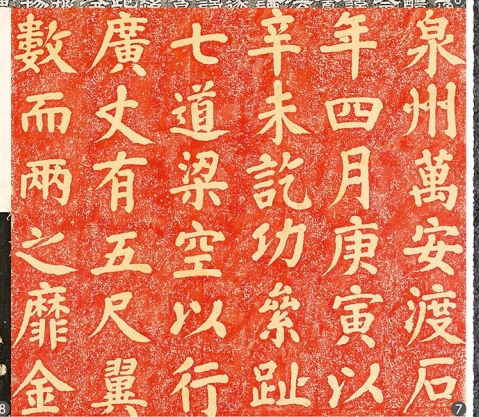 泉州萬安渡石
年四月庚寅以
辛未訖功絫趾
七道梁空以行
廣丈有五尺翼
數而兩之靡金
7
8